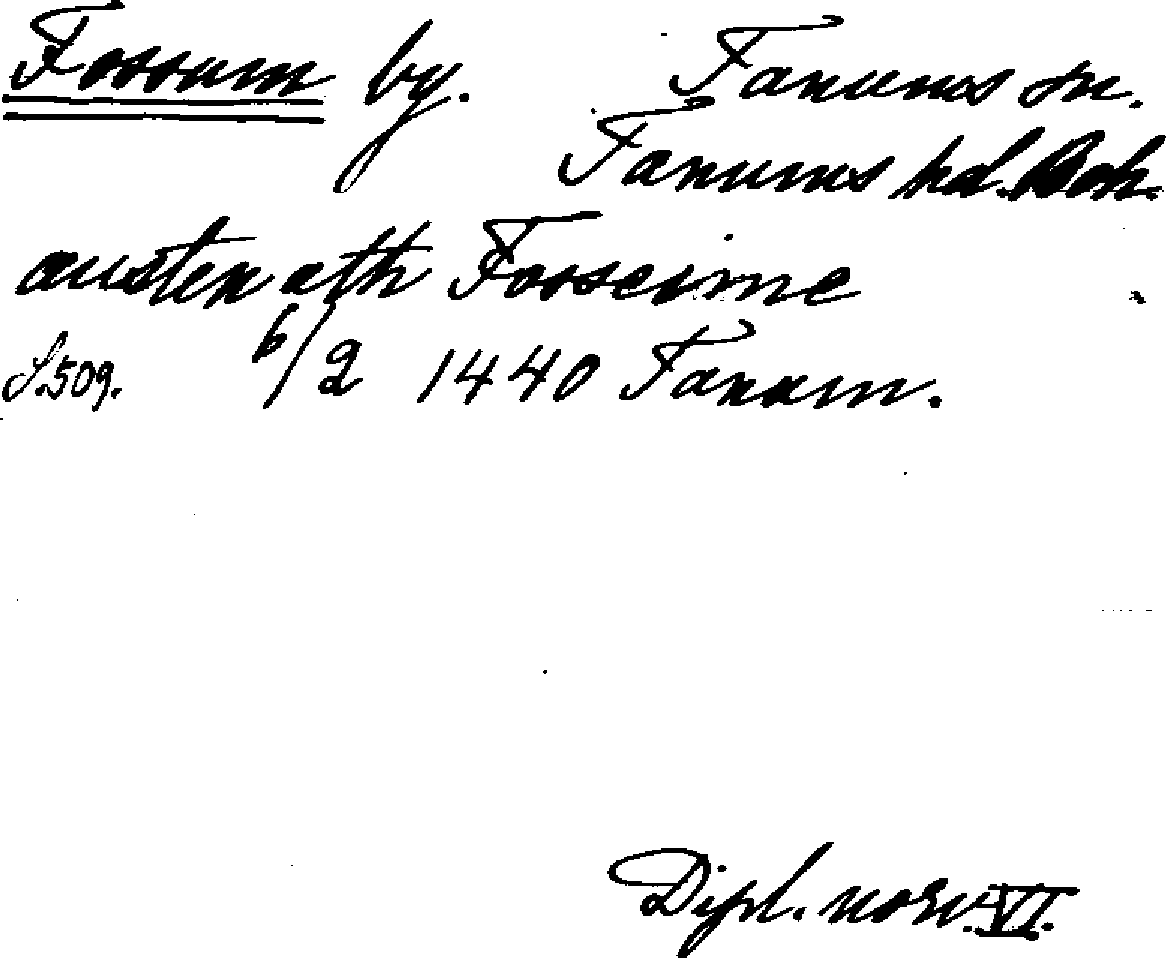 Fossum by. Tanums sn.
Tanums hd. Boh.
austen ath Fosseime
S.509. 6/2 1440 Tanum.
Dipl. norv. VI.